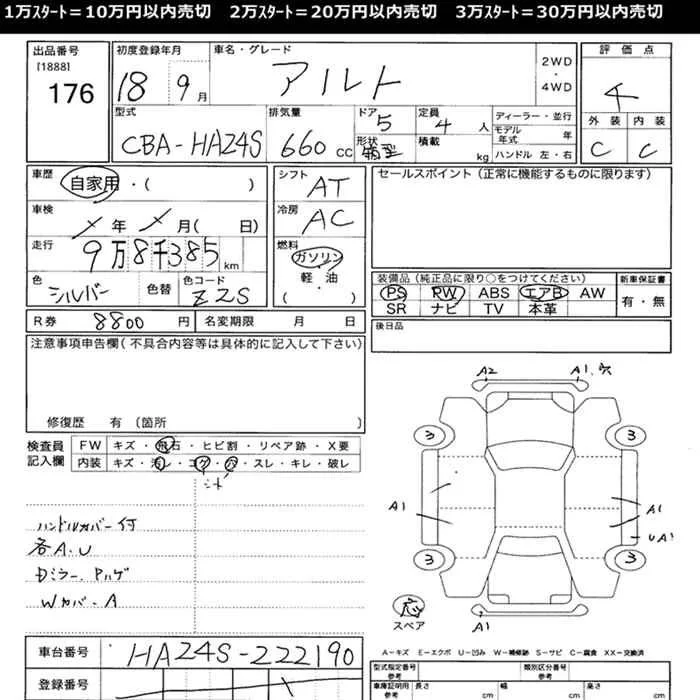 1万ｽﾀｰﾄ＝10万円以内売切　2万ｽﾀｰﾄ＝20万円以内売切　3万ｽﾀｰﾄ＝30万円以内売切
出品番号
[1888]
176
初度登録年月
18 9月
車名・グレード
アルト
2WD
・
4WD
評価点
外装 内装
C C
型式
CBA-HA24S
排気量
660 CC
ドア
5
形状
箱型
定員
4人
積載
kg
ディーラー・並行
モデル年式 年
ハンドル 左・右
車歴
自家用・( )
車検
メ年 メ月( 日)
走行
9万8千385km
色
シルバー 色替
色コード
ZZS
シフト
AT
冷房
AC
燃料
ガソリン
・
軽・油
( )
セールスポイント（正常に機能するものに限ります）
装備品（純正品に限り○をつけてください）
PS PW ABS エアB AW
SR ナビ TV 本革
新車保証書
有・無
R券 8800円
名変期限 月 日
後日品
注意事項申告欄（不具合内容等は具体的に記入して下さい）
修復歴 有（箇所 ）
検査員
記入欄
FW キズ・飛石・ヒビ割・リペア跡・X要
内装 キズ・汚レ・コゲ・穴・スレ・キレ・破レ
ハンドルカバー付
各A.U
Dミラー.Pハゲ
Wカバー.A
A2 A1.穴
3 3
A1 A1
UA1
3 3
応
スペア
A1
A－キズ E－エクボ U－凹み W－補修跡 S－サビ C－腐食 XX－交換済
車台番号
HA24S-222190
登録番号
型式指定番号
参考
類別区分番号
参考
車庫証明用
参考
長さ cm
幅 cm
高さ cm